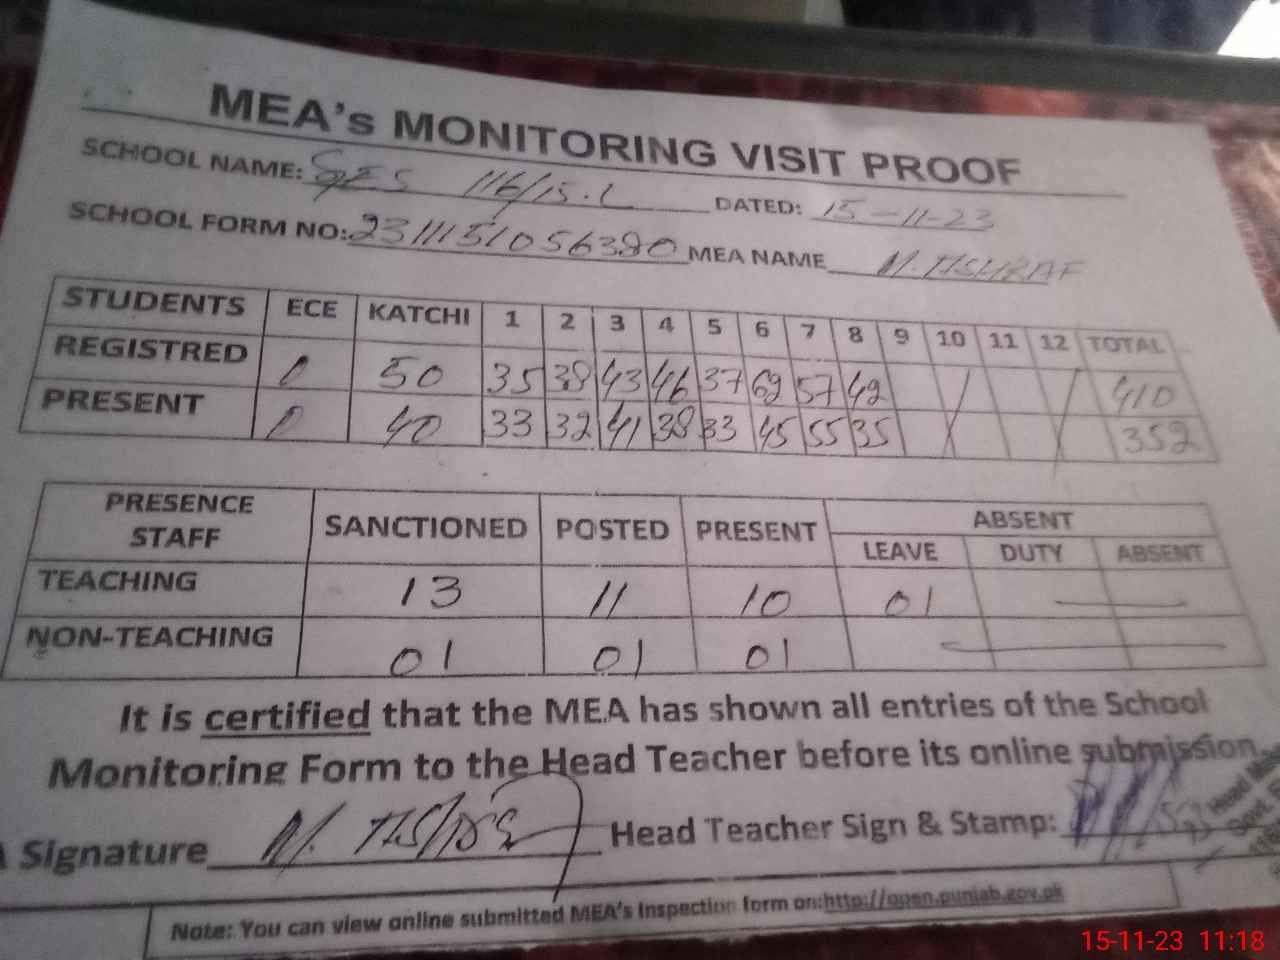 MEA's MONITORING VISIT PROOF
SCHOOL NAME: GES 116/15.L DATED: 15-11-23
SCHOOL FORM NO: 2311151056380 MEA NAME M. ASHRAF
STUDENTS ECE KATCHI 1 2 3 4 5 6 7 8 9 10 11 12 TOTAL
REGISTRED 0 50 35 38 43 46 37 62 57 42 410
PRESENT 0 40 33 32 41 38 33 45 55 35 352
PRESENCE STAFF SANCTIONED POSTED PRESENT ABSENT
LEAVE DUTY ABSENT
TEACHING 13 11 10 01 —
NON-TEACHING 01 01 01 —
It is certified that the MEA has shown all entries of the School
Monitoring Form to the Head Teacher before its online submission.
Signature M. Ashraf Head Teacher Sign & Stamp:
Head
Govt.
Note: You can view online submitted MEA's Inspection form on:http://open.punjab.gov.pk
15-11-23 11:18